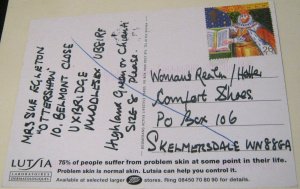 MRS SUE EGLETON
"OTTERSHAW"
10, BELMONT CLOSE
UXBRIDGE
MIDDLESEX UB8 1RF
Highland Green or Chianti
SIZE 8 Please.
Womans Realm / Hotter
Comfort Shoes
PO Box 106
SKELMERSDALE WN88GA
LUTSIA
LABORATOIRES
DERMATOLOGIQUES
75% of people suffer from problem skin at some point in their life.
Problem skin is normal skin. LUTSIA can help.
Available at selected larger Boots stores. Ring 08450 70 80 90 for details.